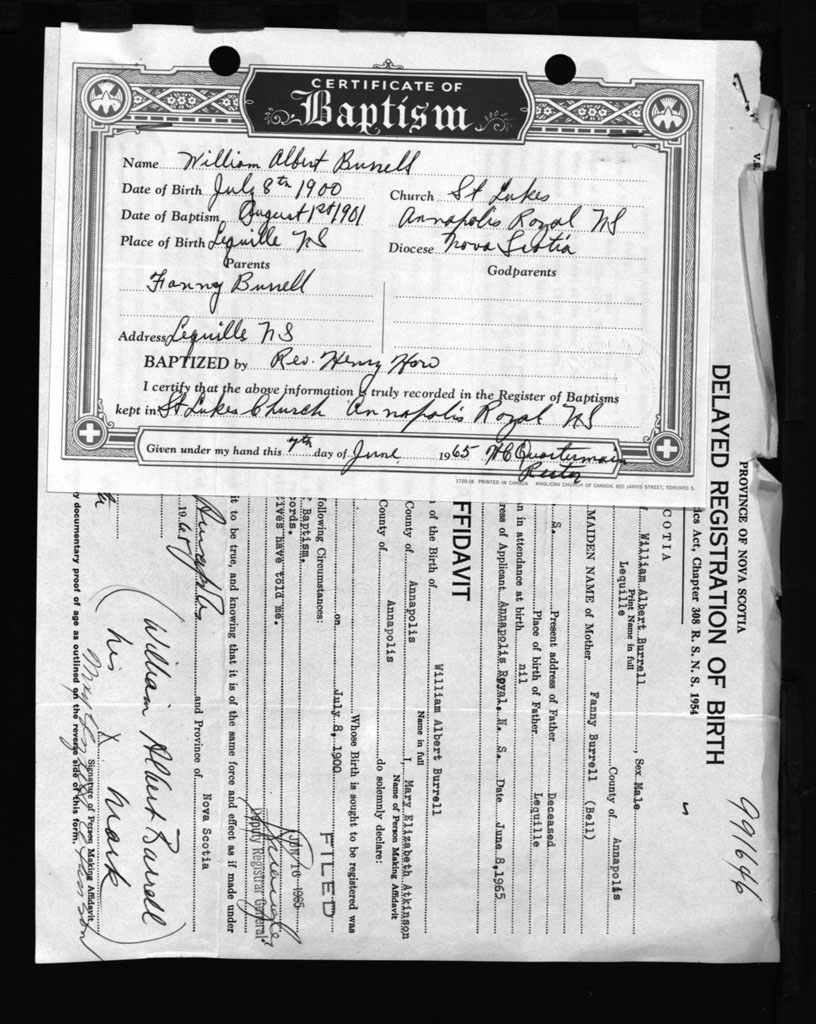 CERTIFICATE OF
Baptism
Name William Albert Burrell
Date of Birth July 8th 1900
Church St Lukes
Date of Baptism August 1st 1901
Annapolis Royal NS
Place of Birth Lequille NS
Diocese Nova Scotia
Parents
Godparents
Fanny Burrell
Address Lequille NS
BAPTIZED by Rev. Henry How
I certify that the above information is truly recorded in the Register of Baptisms
kept in St Lukes Church Annapolis Royal NS
Given under my hand this 7th day of June 1965 W C Quartermain
Rector
1720-56 PRINTED IN CANADA ANGLICAN CHURCH OF CANADA, 600 JARVIS STREET, TORONTO 5.
V.S.
991646
PROVINCE OF NOVA SCOTIA
DELAYED REGISTRATION OF BIRTH
ics Act, Chapter 308 R. S. N. S. 1954
COTIA
William Albert Burrell, Sex Male
Print Name in full
Lequille County of Annapolis
MAIDEN NAME of Mother Fanny Burrell (Bell)
S. Present address of Father Deceased
Place of birth of Father Lequille
n in attendance at birth nil
ress of Applicant Annapolis Royal, N. S. Date June 8, 1965
FFIDAVIT
n of the Birth of William Albert Burrell
Name in full
County of Annapolis I, Mary Elizabeth Atkinson
Name of Person Making Affidavit
County of Annapolis do solemnly declare:
Whose Birth is sought to be registered was
on July 8, 1900
ollowing Circumstances:
FILED
Baptism.
JUN 10 1965
cords.
Deputy Registrar General
tives have told me.
it to be true, and knowing that it is of the same force and effect as if made under
Annapolis and Province of Nova Scotia
1965
William Albert Burrell
his X mark
Signature of Person Making Affidavit
y documentary proof of age as outlined on the reverse side of this form.